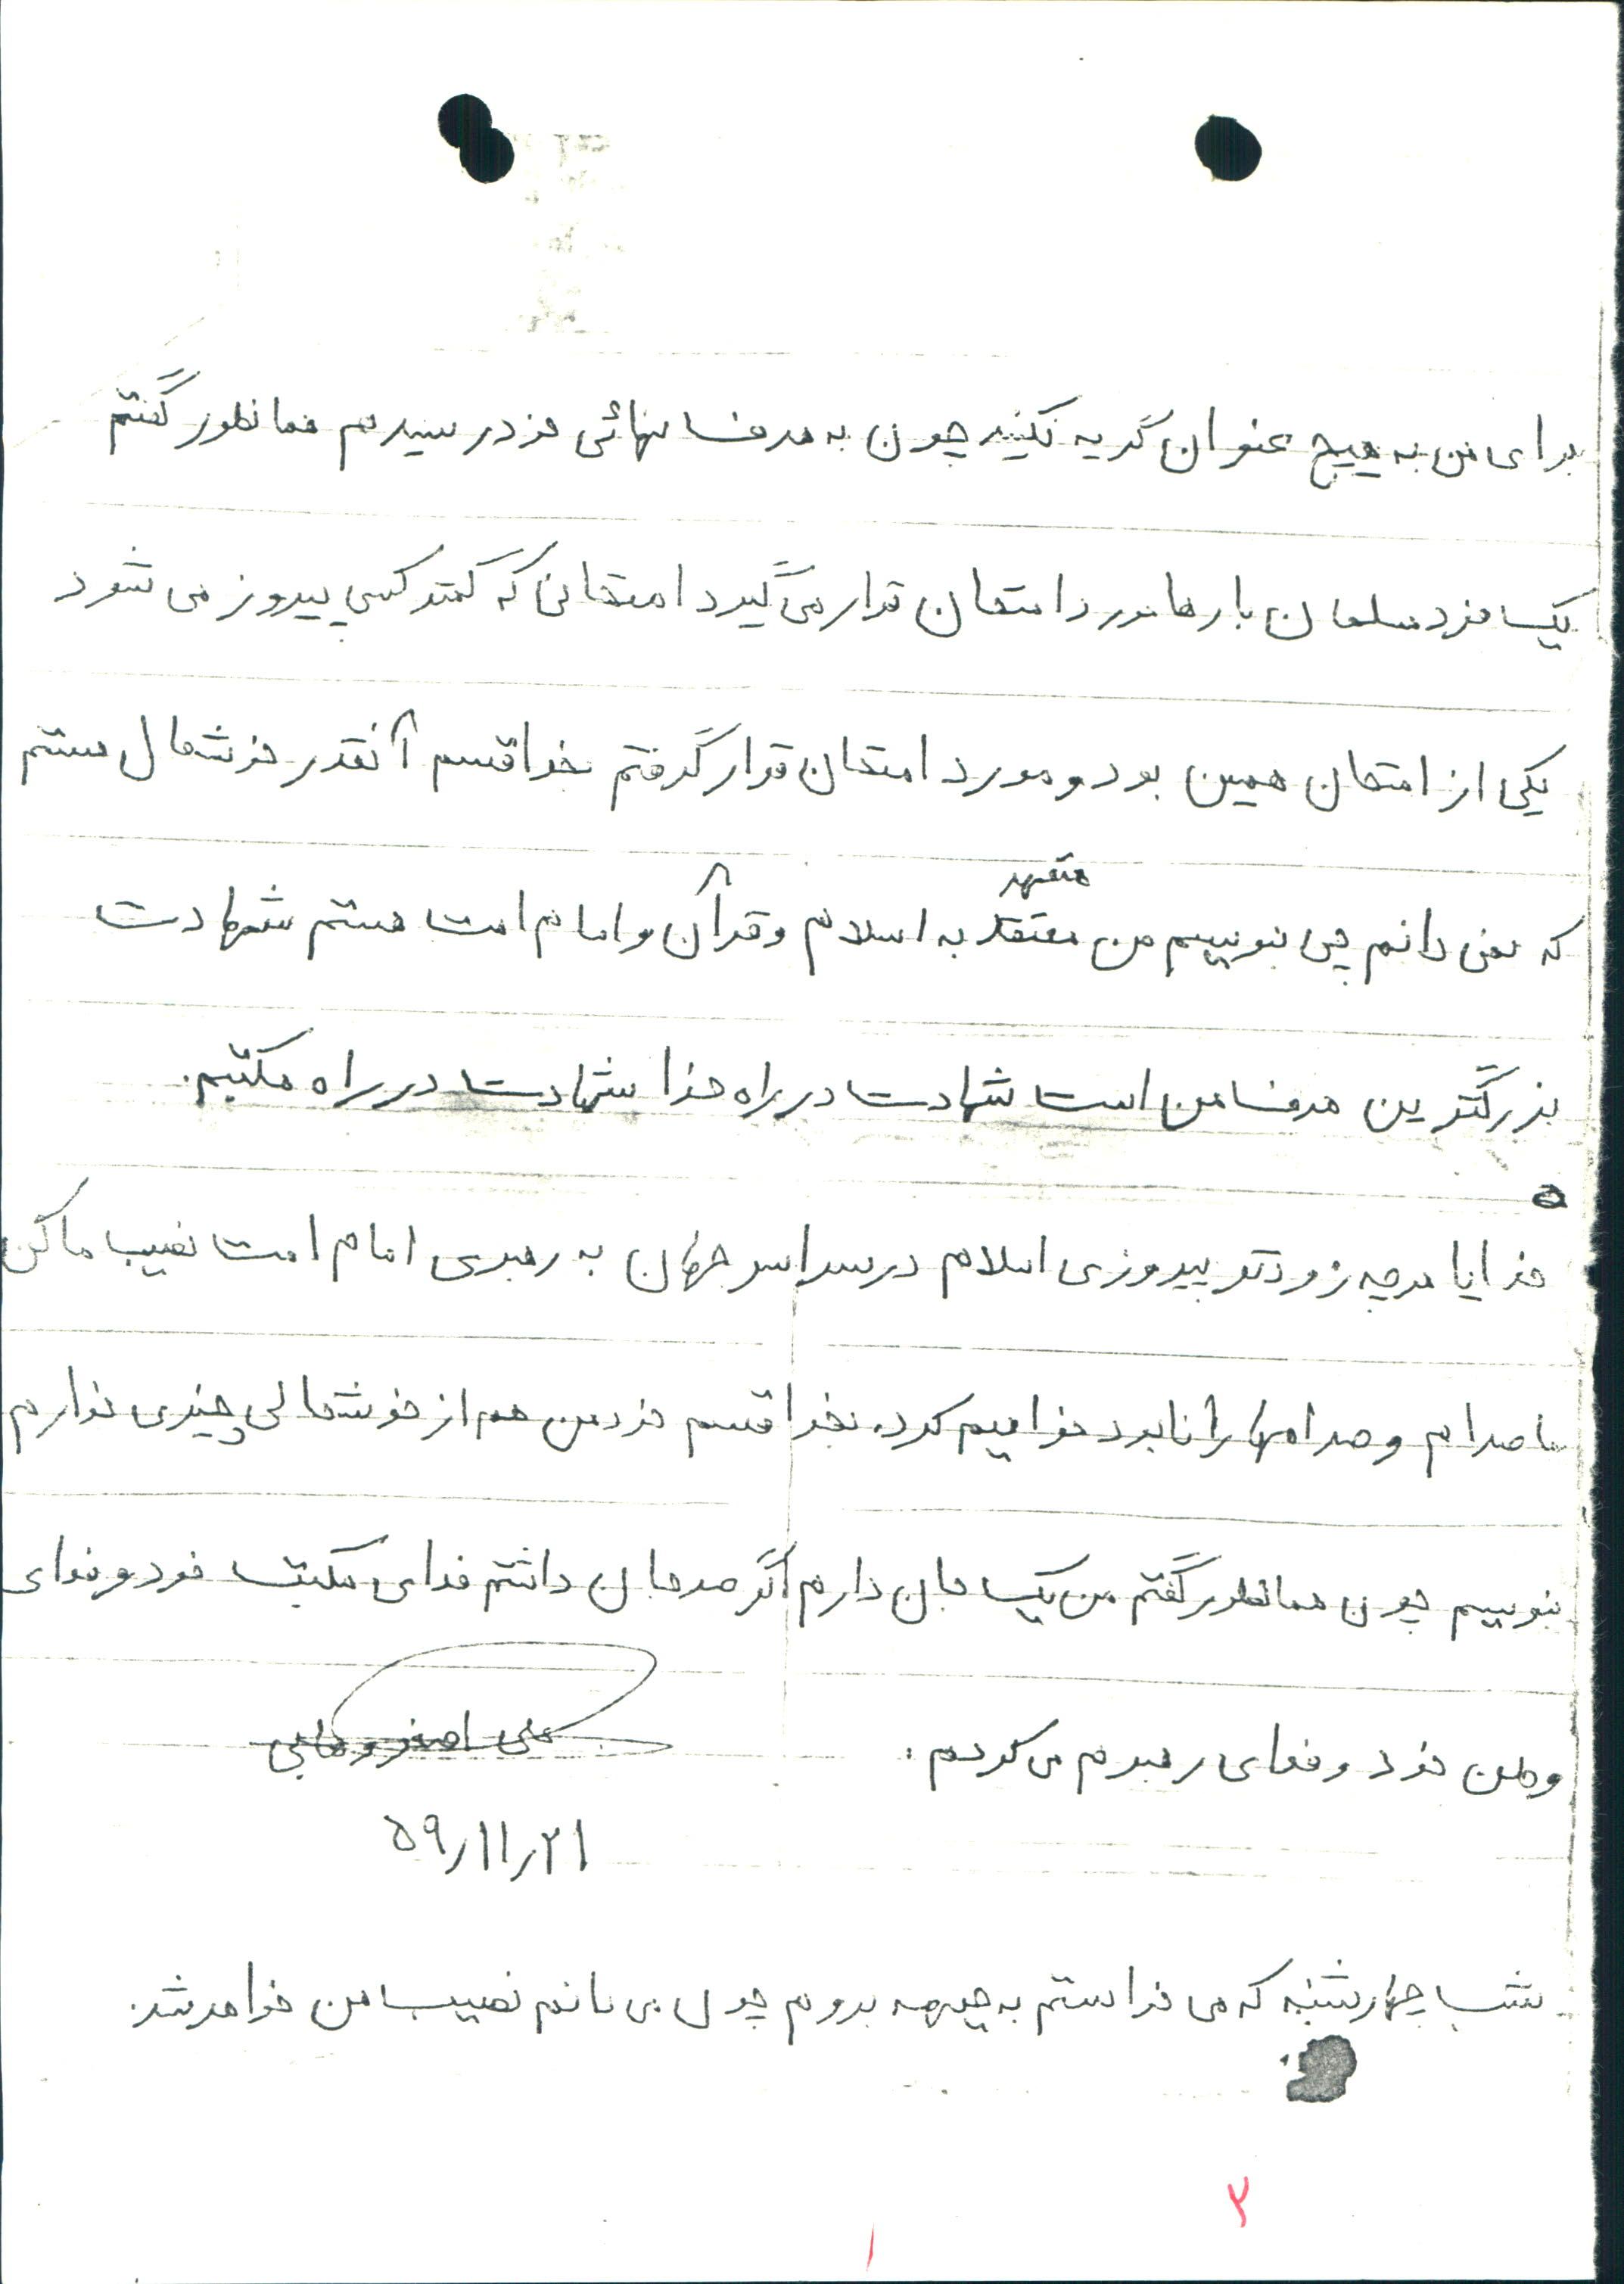 برای من به هیچ عنوان گریه نکنید چون به هدف نهائی خود رسیدم همانطور گفتم
یک فرد مسلمان بارها مورد امتحان قرار می گیرد امتحانی که کمتر کسی پیروز می شود
یکی از امتحان همین بود و مورد امتحان قرار گرفتم بخدا قسم آنقدر خوشحال هستم
متعهد
که نمی دانم چی بنویسم من معتقد به اسلام و قرآن و امام امت هستم شهادت
بزرگترین هدف من است شهادت در راه خدا شهادت در راه مکتبم.
خدایا هرچه زودتر پیروزی اسلام در سراسر جهان به رهبری امام امت نصیب ما کن
ما صدام و صدامها را نابود خواهیم کرد. بخدا قسم خود من هم از خوشحالی چیزی ندارم
بنویسم چون همانطور گفتم من یک جان دارم اگر صد جان داشتم فدای مکتب خود و فدای
وطن خود و فدای رهبرم می کردم.
علی اصغر وهابی
۵۹/۱۱/۲۱
شب چهارشنبه که می خواستم به جبهه بروم چون می دانم نصیب من خواهد شد.
۳
۱